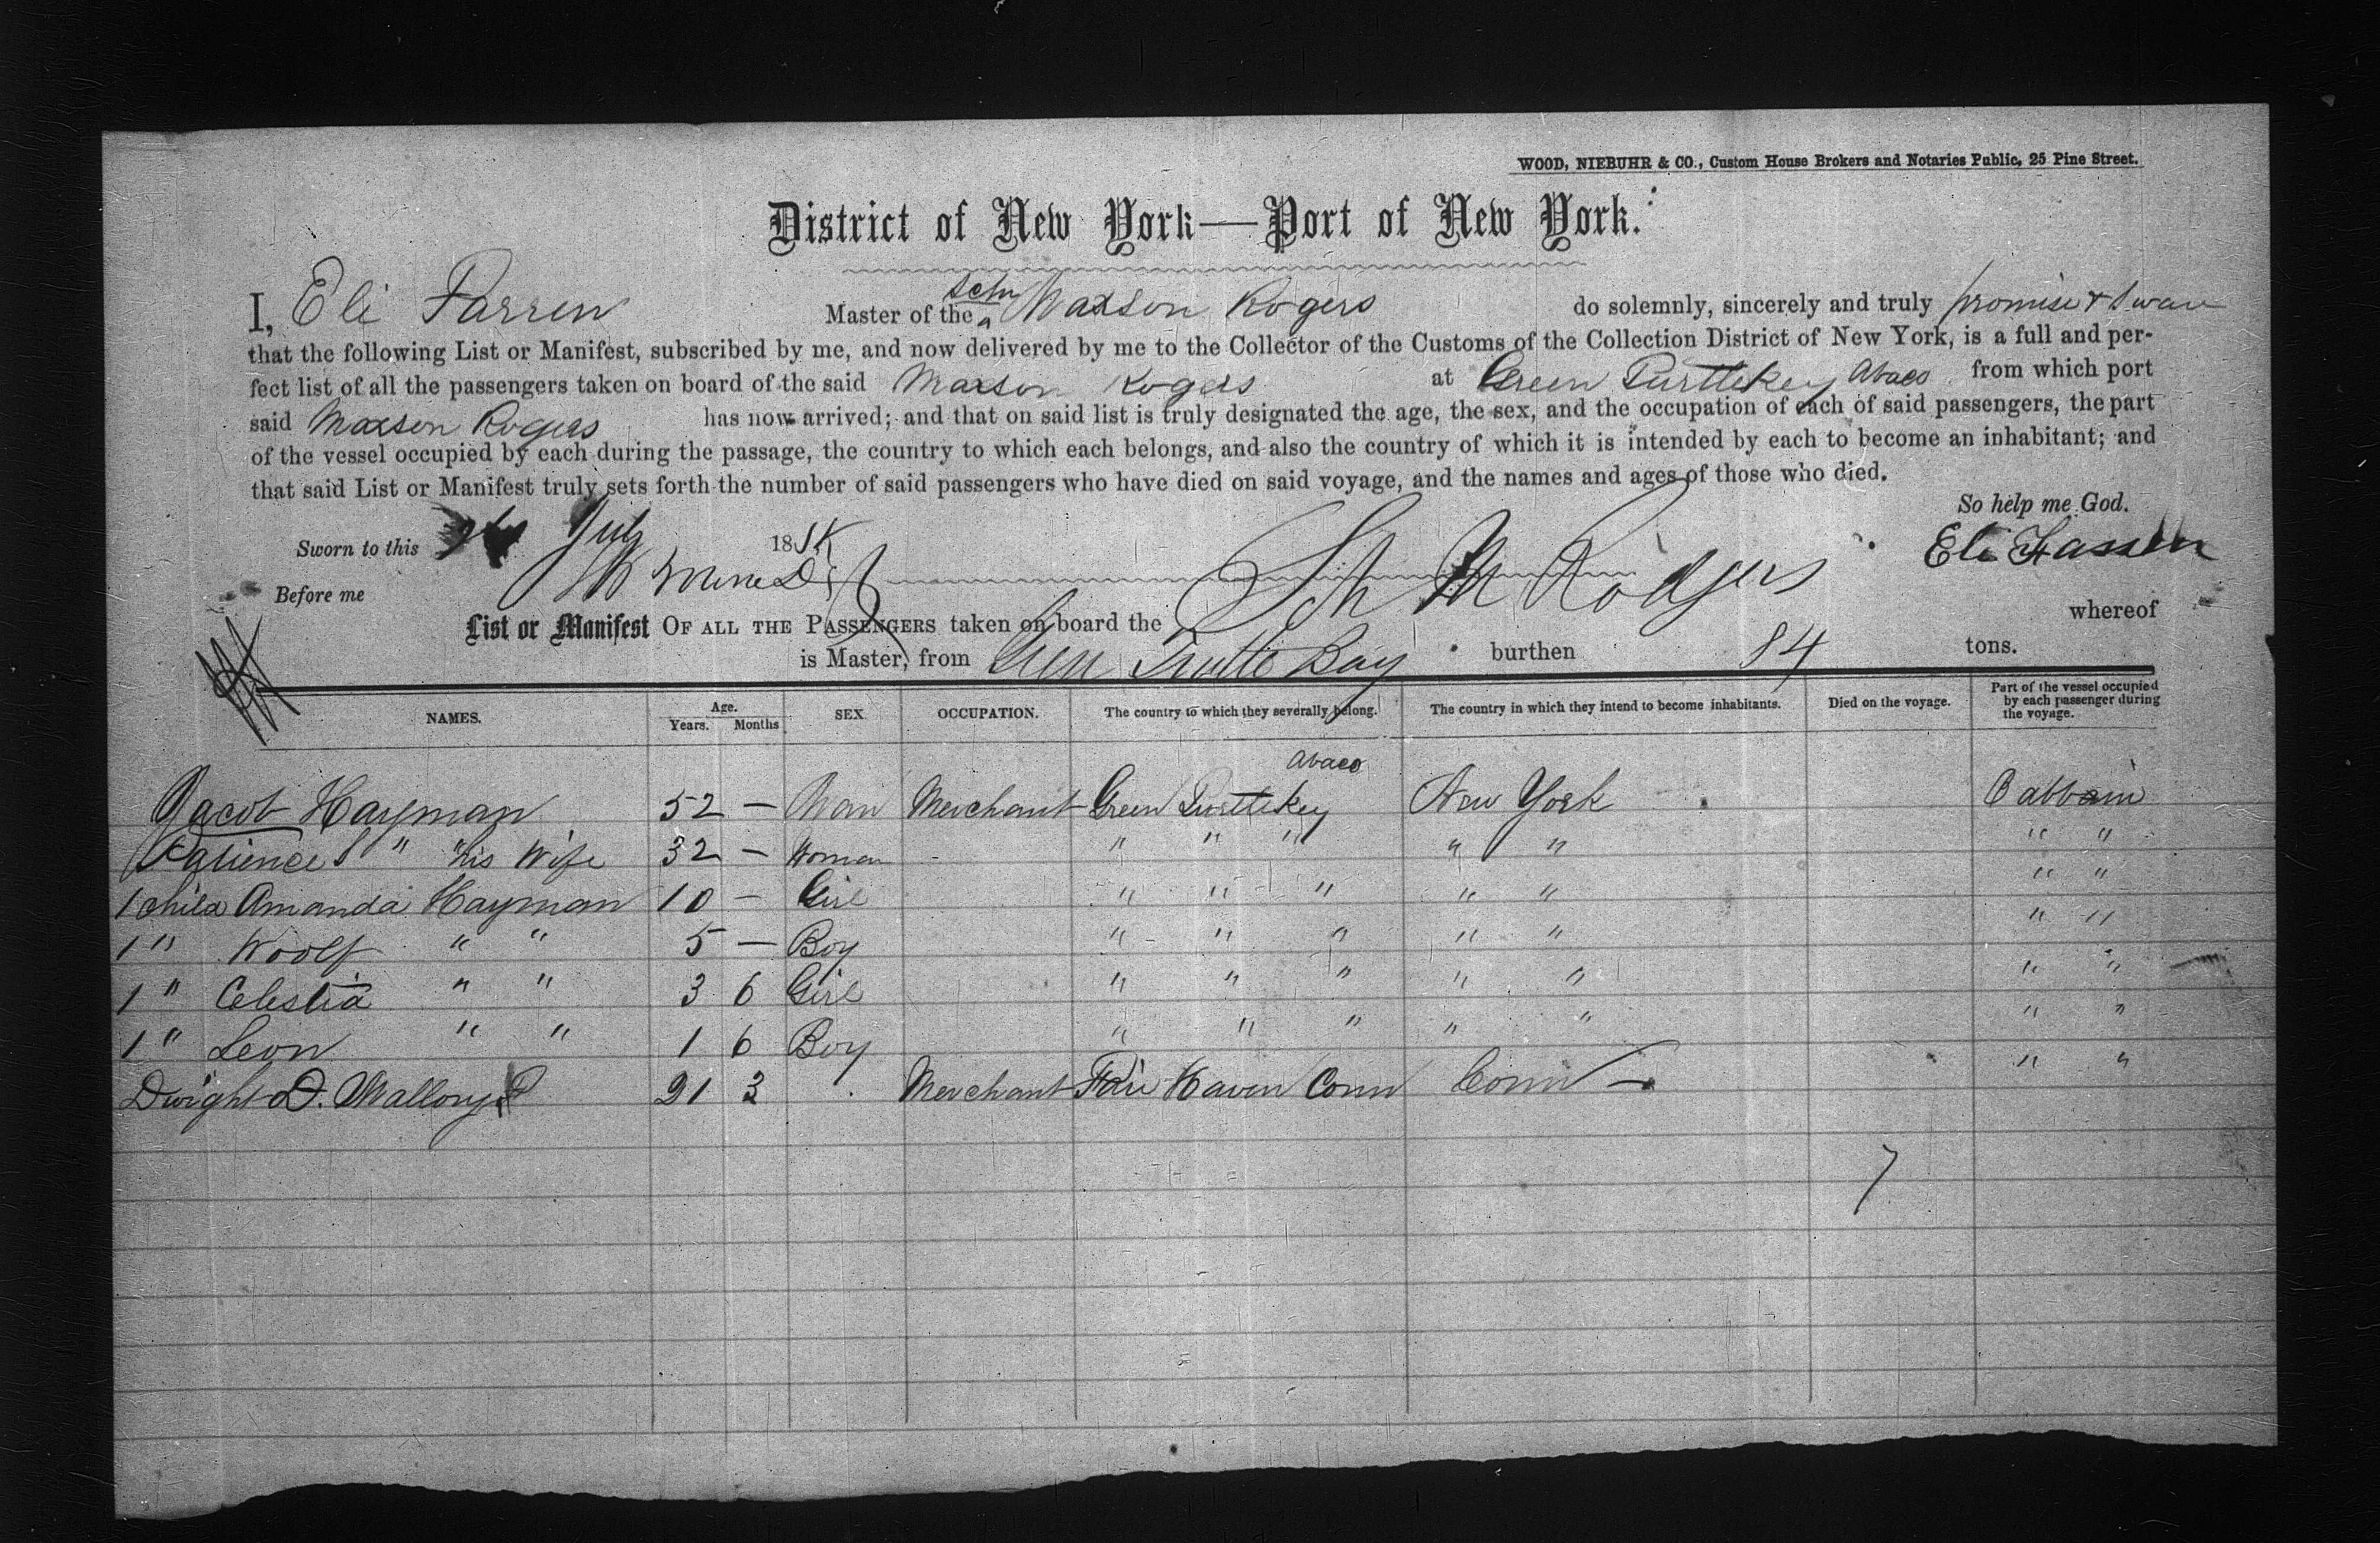 WOOD, NIEBUHR & CO., Custom House Brokers and Notaries Public, 25 Pine Street.
District of New York—Port of New York.
I, Eli Farren Master of the Schr Maxson Rogers do solemnly, sincerely and truly promise & Sware
that the following List or Manifest, subscribed by me, and now delivered by me to the Collector of the Customs of the Collection District of New York, is a full and per-
fect list of all the passengers taken on board of the said Maxson Rogers at Green Turtlekey Abaco from which port
said Maxson Rogers has now arrived; and that on said list is truly designated the age, the sex, and the occupation of each of said passengers, the part
of the vessel occupied by each during the passage, the country to which each belongs, and also the country of which it is intended by each to become an inhabitant; and
that said List or Manifest truly sets forth the number of said passengers who have died on said voyage, and the names and ages of those who died.
So help me God.
Sworn to this July 18 Eli Farren
Before me
List or Manifest OF ALL THE PASSENGERS taken on board the Sch M Rodgers whereof
is Master, from Green Turtle Bay burthen 84 tons.
NAMES. Age. Years. Months SEX. OCCUPATION. The country to which they severally belong. The country in which they intend to become inhabitants. Died on the voyage. Part of the vessel occupied by each passenger during the voyage.
Abaco
Jacob Hayman 52 — Man Merchant Green Turtlekey New York Cabbain
Patience " " his Wife 32 — Woman " " " " " " "
1 Child Amanda Hayman 10 — Girl " " " " " " "
1 " Woolf " " 5 — Boy " " " " " " "
1 " Celestia " " 3 6 Girl " " " " " " "
1 " Leon " " 1 6 Boy " " " " " " "
Dwight D. Mallory 21 3 Merchant Fair Haven Conn Conn — " "
7